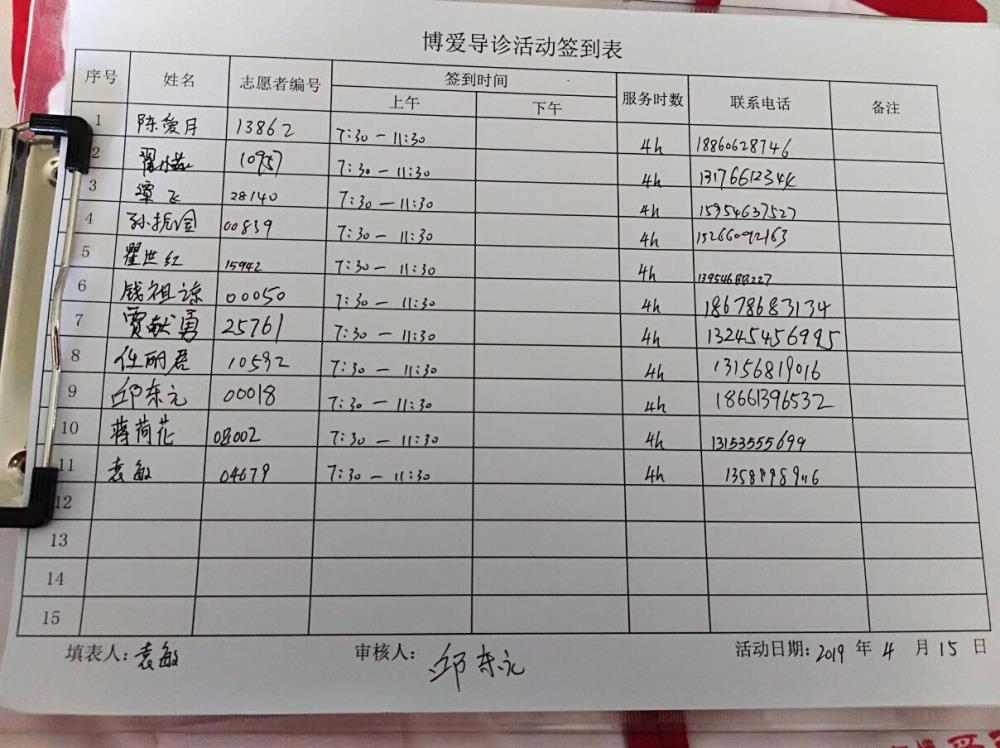 博爱导诊活动签到表
序号 姓名 志愿者编号 签到时间 服务时数 联系电话 备注
上午 下午
1 陈爱月 13862 7:30-11:30 4h 18860628746
2 10957 7:30-11:30 4h 13176612344
3 覃飞 28140 7:30-11:30 4h 15954637527
4 孙振金 00839 7:30-11:30 4h 15266092163
5 瞿世红 15942 7:30-11:30 4h 13954688227
6 钱祖谅 00050 7:30-11:30 4h 18678683134
7 贾献勇 25761 7:30-11:30 4h 13245456995
8 任丽君 10592 7:30-11:30 4h 13156819016
9 邱东元 00018 7:30-11:30 4h 18661396532
10 蒋荷花 08002 7:30-11:30 4h 13153555699
11 袁敏 04679 7:30-11:30 4h
12
13
14
15
填表人:袁敏 审核人:邱东元 活动日期:2019 年 4 月 15 日